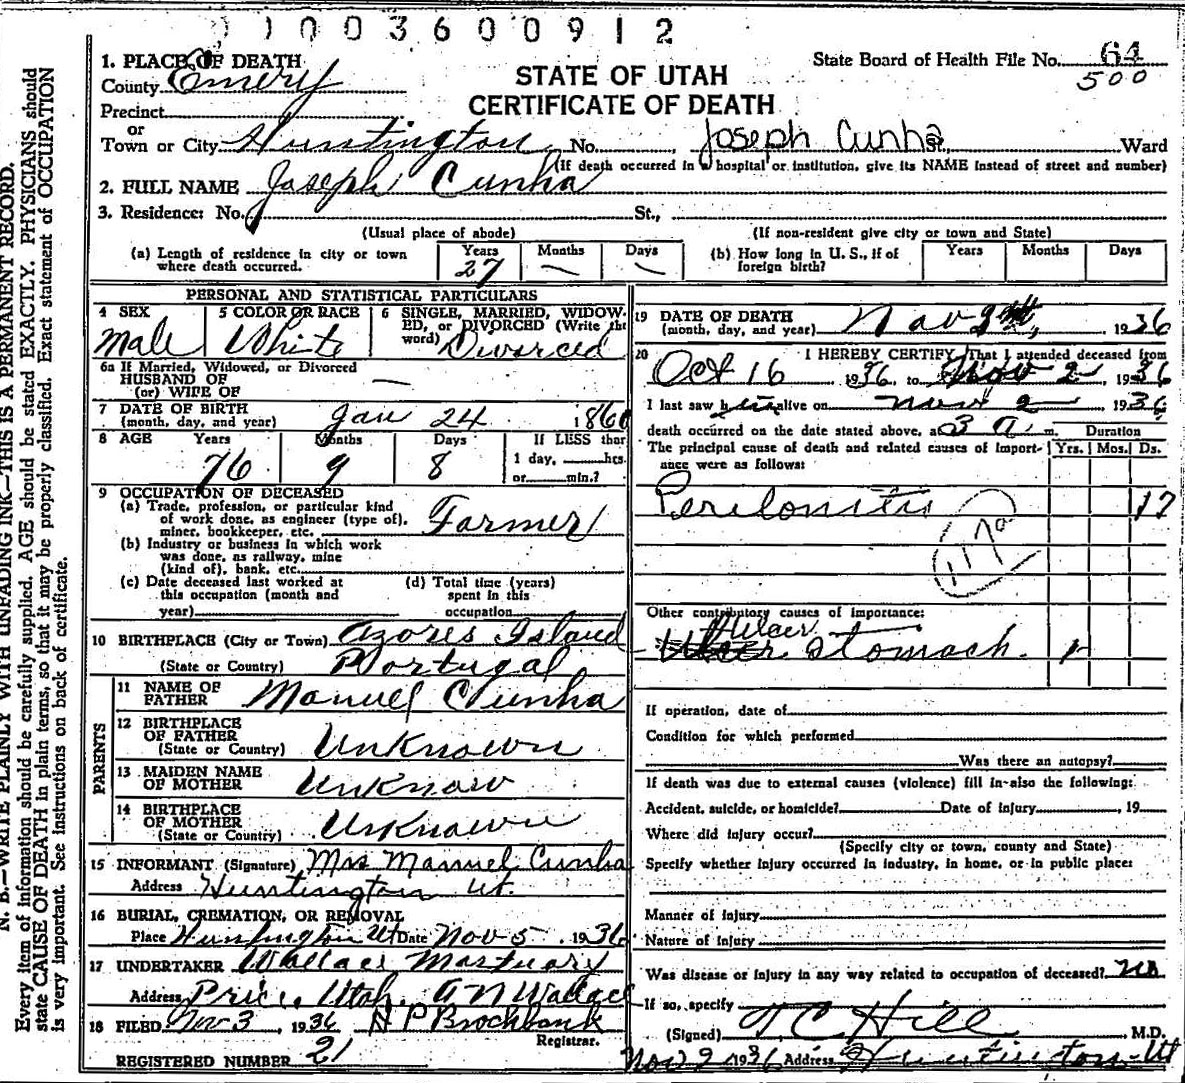 1003600912
1. PLACE OF DEATH
County Emery
STATE OF UTAH
CERTIFICATE OF DEATH
State Board of Health File No. 64
500
Precinct
or
Town or City Huntington No. Joseph Cunha Ward
(If death occurred in a hospital or institution, give its NAME instead of street and number)
2. FULL NAME Joseph Cunha
3. Residence: No. St.,
(Usual place of abode) (If non-resident give city or town and State)
(a) Length of residence in city or town where death occurred. Years 27 Months — Days —
(b) How long in U. S., if of foreign birth? Years Months Days
PERSONAL AND STATISTICAL PARTICULARS
4 SEX Male
5 COLOR OR RACE White
6 SINGLE, MARRIED, WIDOWED, or DIVORCED (Write the word) Divorced
6a If Married, Widowed, or Divorced
HUSBAND OF —
(or) WIFE OF
7 DATE OF BIRTH
(month, day, and year) Jan 24 1860
8 AGE Years 76 Months 9 Days 8
If LESS than
1 day, hrs.
or min.?
9 OCCUPATION OF DECEASED
(a) Trade, profession, or particular kind
of work done, as engineer (type of),
miner, bookkeeper, etc. Farmer
(b) Industry or business in which work
was done, as railway, mine
(kind of), bank, etc.
(c) Date deceased last worked at
this occupation (month and
year)
(d) Total time (years)
spent in this
occupation
10 BIRTHPLACE (City or Town) Azores Island
(State or Country) Portugal
PARENTS
11 NAME OF
FATHER Manuel Cunha
12 BIRTHPLACE
OF FATHER
(State or Country) Unknown
13 MAIDEN NAME
OF MOTHER Unknow
14 BIRTHPLACE
OF MOTHER
(State or Country) Unknown
15 INFORMANT (Signature) Mrs Manuel Cunha
Address Huntington Ut.
16 BURIAL, CREMATION, OR REMOVAL
Place Huntington Ut Date Nov 5, 1936
17 UNDERTAKER Wallace Mortuary
Address Price, Utah. A N Wallace
18 FILED Nov 3, 1936 H P Brockbank
Registrar.
REGISTERED NUMBER 21
19 DATE OF DEATH
(month, day, and year) Nov 2nd, 1936
20 I HEREBY CERTIFY, That I attended deceased from
Oct 16, 1936, to Nov 2, 1936
I last saw him alive on Nov 2, 1936
death occurred on the date stated above, at 3 a. m. Duration
The principal cause of death and related causes of importance were as follows: Yrs. Mos. Ds.
Peritonitis 17
117a
Other contributory causes of importance:
Ulcer
Ulcer Stomach.
If operation, date of
Condition for which performed
Was there an autopsy?
If death was due to external causes (violence) fill in also the following:
Accident, suicide, or homicide? Date of injury , 19
Where did injury occur?
(Specify city or town, county and State)
Specify whether injury occurred in industry, in home, or in public place:
Manner of injury
Nature of injury
Was disease or injury in any way related to occupation of deceased? no
If so, specify
(Signed) T C Hill M.D.
Nov 2 1936 Address Huntington Ut
N. B.—WRITE PLAINLY WITH UNFADING INK—THIS IS A PERMANENT RECORD.
Every item of information should be carefully supplied. AGE should be stated EXACTLY. PHYSICIANS should
state CAUSE OF DEATH in plain terms, so that it may be properly classified. Exact statement of OCCUPATION
is very important. See instructions on back of certificate.